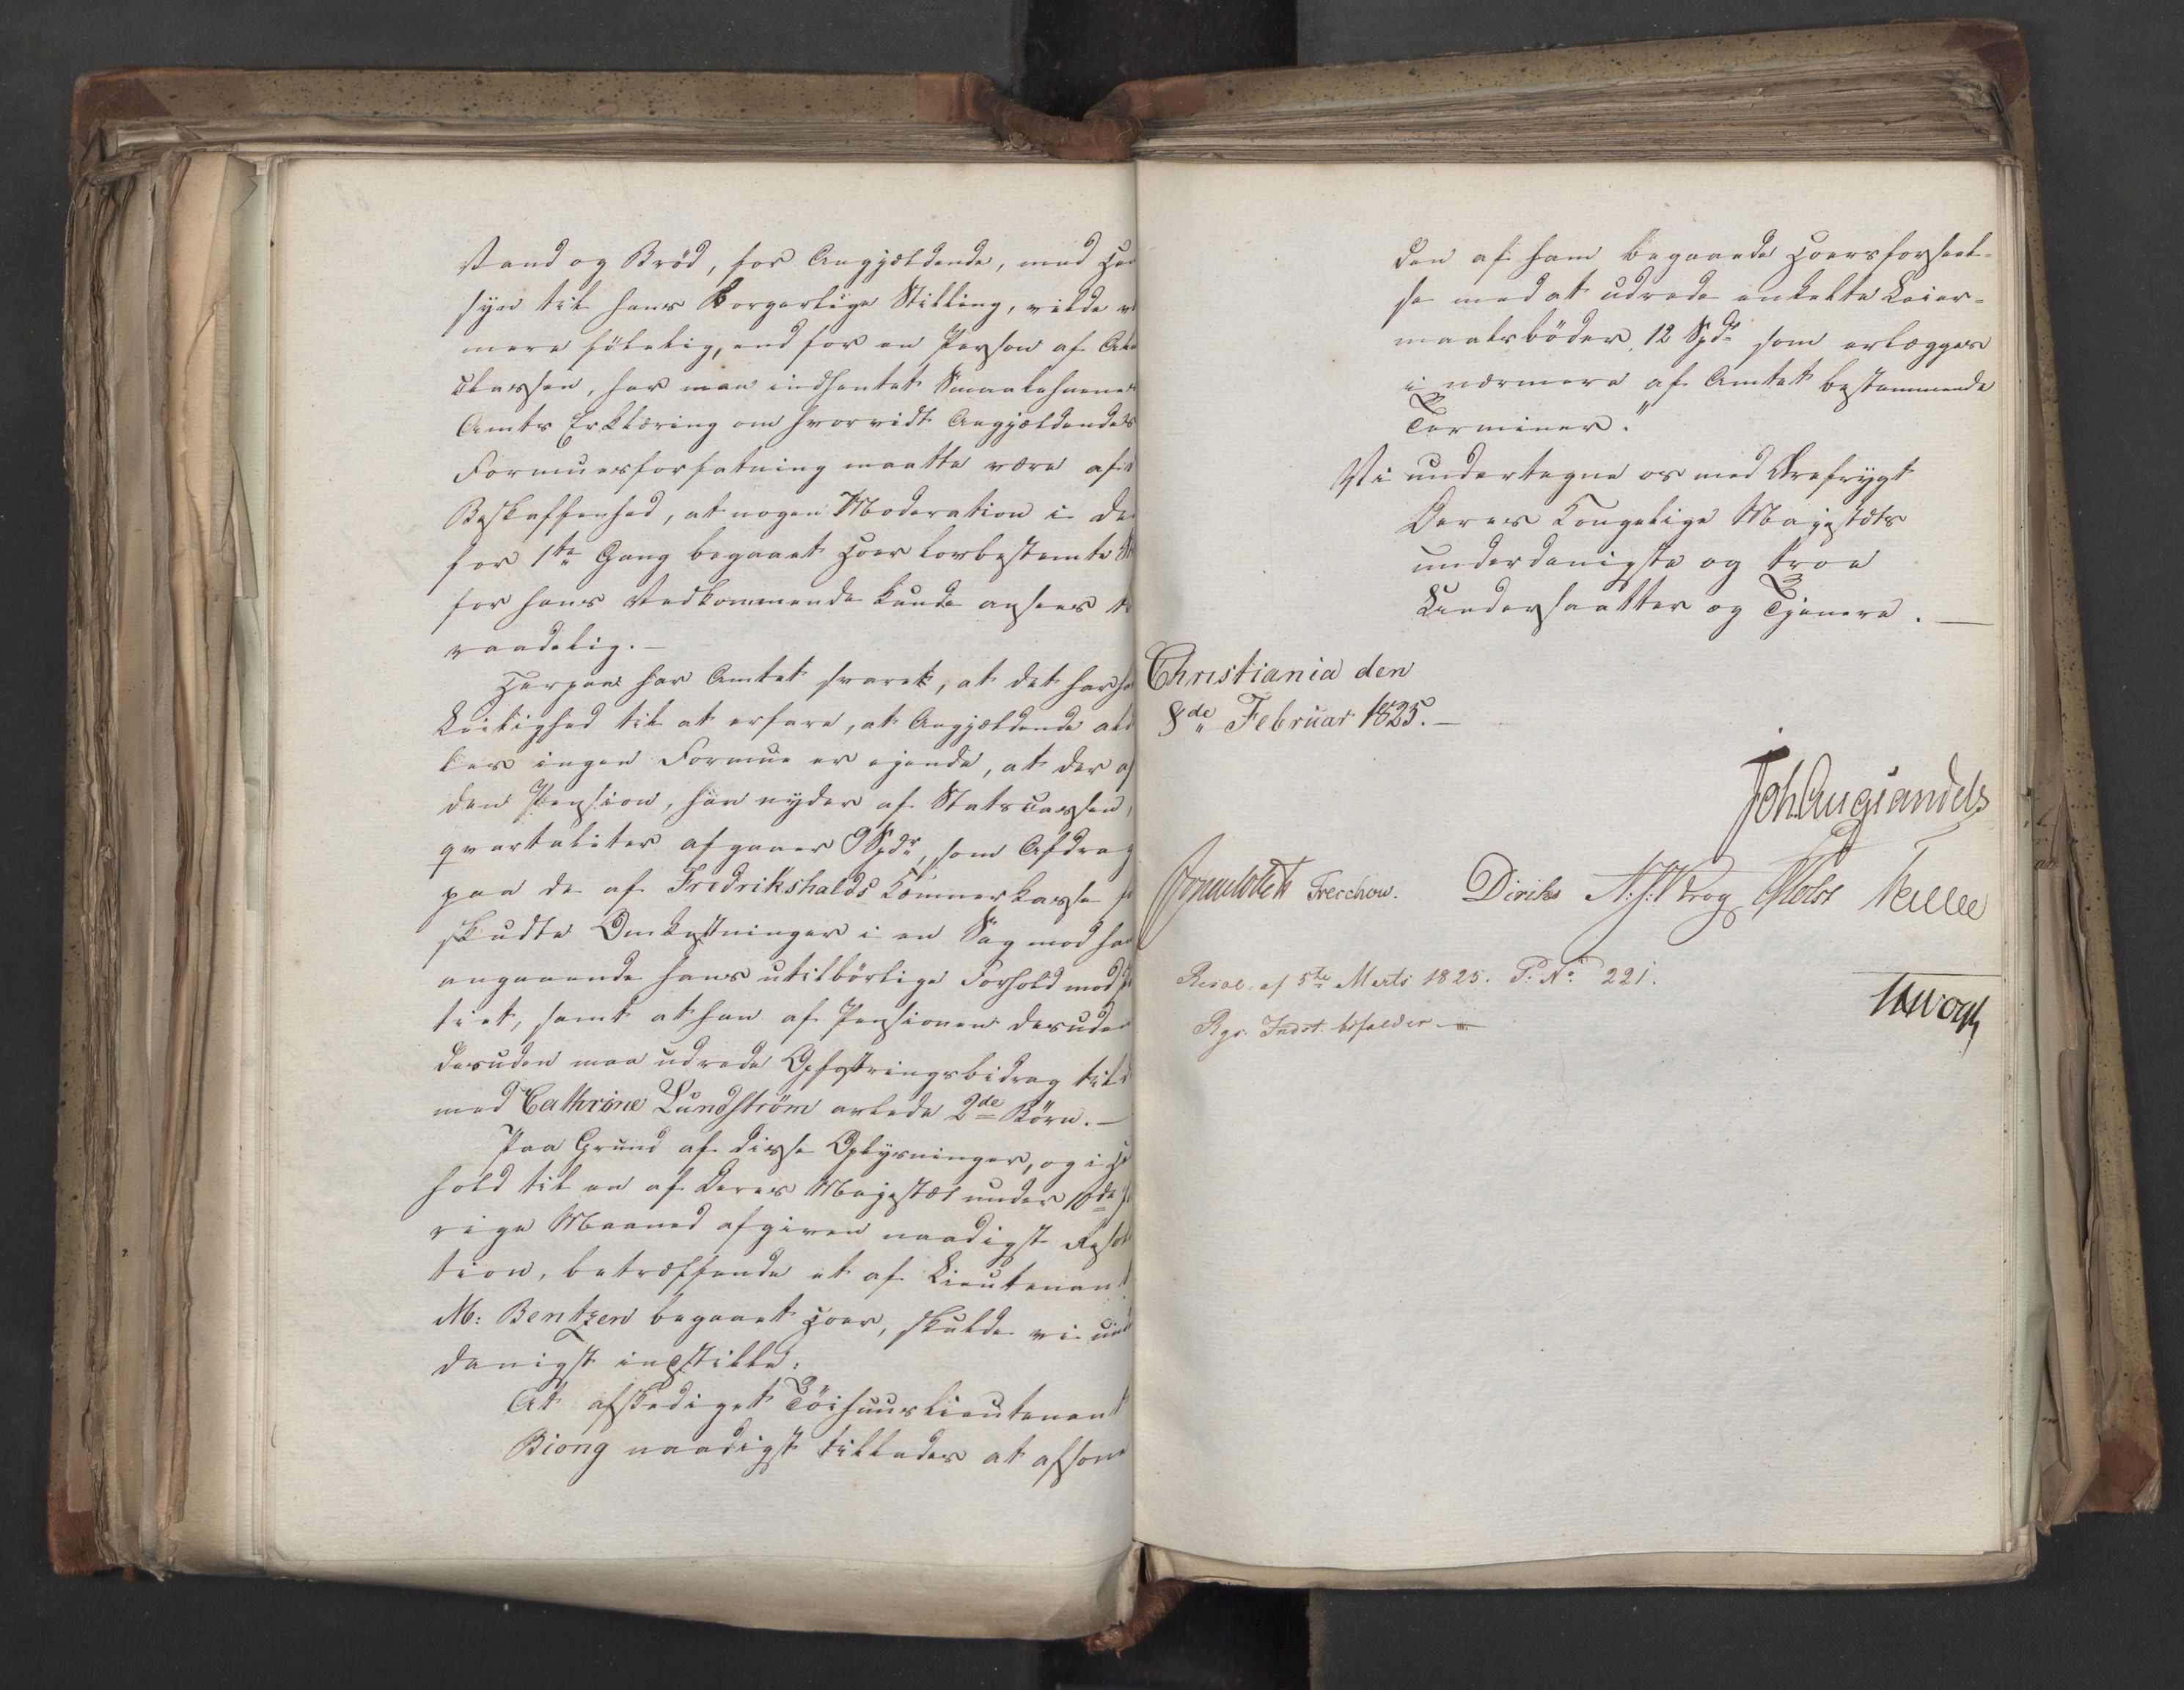 Vand og Brød, for Angjældende, med Hen
syn til hans borgerlige Stilling, vilde v
mere følelig, end for en Person af Al
Classen, har man indhentet Smaalehnenes
Amts Erklæring om hvorvidt Angjældendes
Formuesforfatning maatte være af d
Beskaffenhed, at nogen Moderation i de
for 1ste Gang begaaet Hoer lovbestemte
for hans Vedkommende kunde ansees til
raadelig.-
Herpaa har Amtet svaret, at det har ha
Leilighed til at erfare, at Angjældende al
les ingen Formue er ejende, at der af
den Pension, han nyder af Statscassen,
qvartaliter afgaaer 9 Spdr, som Afdrag
paa de af Fredrikshalds Kæmnerkasse fo
skudte Omkostninger i en Sag mod ham
angaaende hans utilbörlige Forhold mod
tiet, samt at han af Pensionen desuden
desuden maa udrede Opfostringsbidrag til
med Cathrine Lundström avlede 2de Børn.-
Paa Grund af disse Oplysninger, og i He
hold til en af Deres Majestæt under 10de f
rige Maaned afgiven naadigst Resol
tion, betræffende et af Lieutenant
M: Bentzen begaaet Hoer, skulde vi un
danigst indstille:
At afskediget Töihuuslieutenant
Biong naadigst tillades at afsone
den af ham begaaede Hoersforseel-
se med at udrede enkelte Leier-
maalsböder, 12 Spdr som erlægges
i nærmere af Amtet bestemmende
Terminer."
Vi undertegne os med Ærefrygt
Deres Kongelige Majestæts
underdanigste og troe
Undersaatter og Tjenere.-
Christiania den
8de Februar 1825.-
Joh. Aug. Sandels
Sommerfeldt Treschow. Diriks A: J: Krog Holst
Resol. af 5te Marts 1825. P. No 221.
Rgs. Indst. bifaldes.-